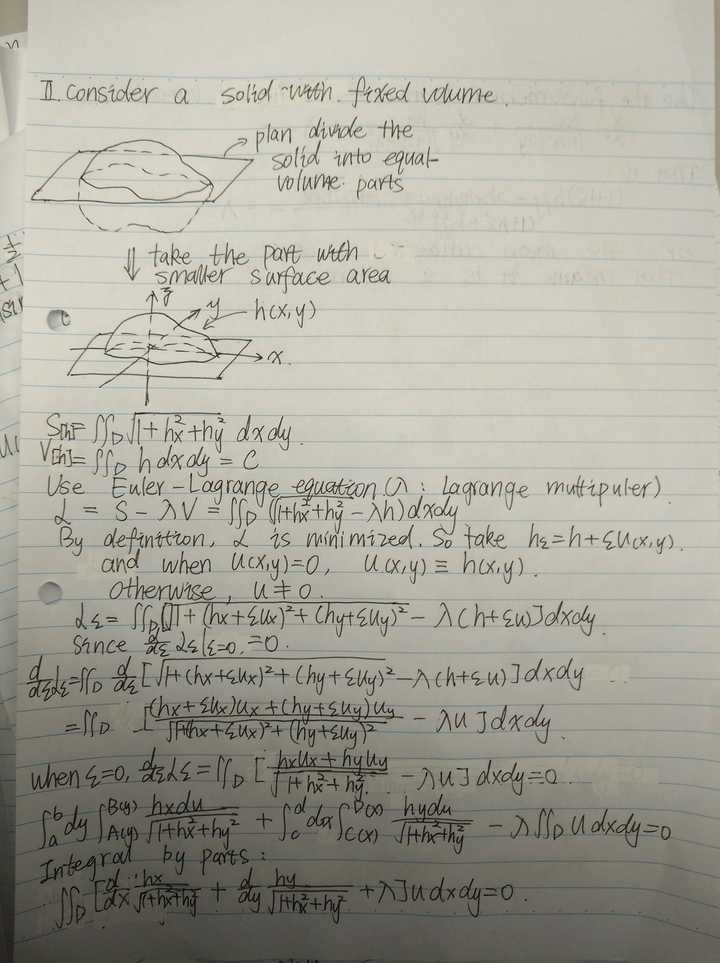 II. Consider a solid with fixed volume.
plan divide the
solid into equal-
volume parts
⇓ take the part with
smaller surface area
z
y
h(x,y)
x
S[h]= ∬_D √(1+h_x²+h_y²) dxdy
V[h]= ∬_D h dxdy = C
Use Euler-Lagrange equation (λ: Lagrange multipuler)
L = S - λV = ∬_D (√(1+h_x²+h_y²) - λh) dxdy
By definition, L is minimized. So take h_ε = h+εu(x,y).
and when u(x,y)=0, u(x,y) ≡ h(x,y).
otherwise, u ≠ 0.
L_ε = ∬_D [√(1+(h_x+εu_x)²+(h_y+εu_y)²) - λ(h+εu)] dxdy
Since d/dε L_ε|ε=0, =0.
d/dε L_ε = ∬_D d/dε [√(1+(h_x+εu_x)²+(h_y+εu_y)²) - λ(h+εu)] dxdy
= ∬_D [((h_x+εu_x)u_x+(h_y+εu_y)u_y)/√(1+(h_x+εu_x)²+(h_y+εu_y)²) - λu] dxdy.
when ε=0, d/dε L_ε = ∬_D [(h_x u_x+h_y u_y)/√(1+h_x²+h_y²) - λu] dxdy=0.
∫_a^b dy ∫_A(y)^B(y) h_x du/√(1+h_x²+h_y²) + ∫_c^d dx ∫_C(x)^D(x) h_y du/√(1+h_x²+h_y²) - λ∬_D u dxdy=0
Integral by parts:
∬_D [d/dx h_x/√(1+h_x²+h_y²) + d/dy h_y/√(1+h_x²+h_y²) + λ] u dxdy=0.